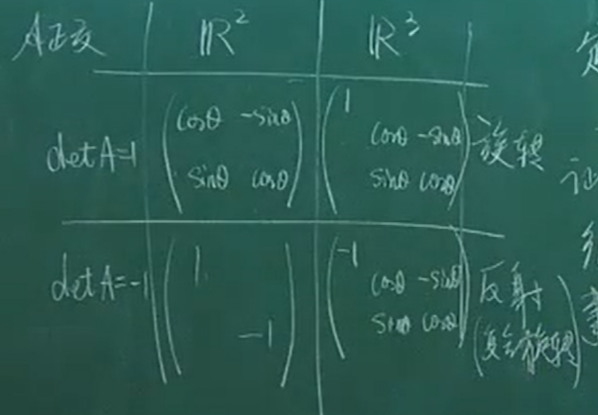 A正交 ℝ² ℝ³
det A=1 (cosθ -sinθ sinθ cosθ) (1 cosθ -sinθ sinθ cosθ) 旋转
det A=-1 (1 -1) (-1 cosθ -sinθ sinθ cosθ) 反射
(复合旋转)
证